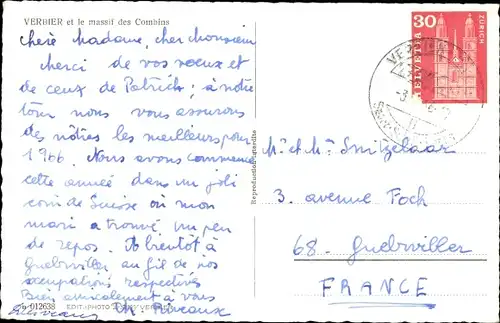 VERBIER et le massif des Combins
Chère Madame, cher Monsieur
Merci de vos voeux et
de ceux de Patrick ; à notre
tour nous vous assurons
des nôtres les meilleurs pour
1966. Nous avons commencé
cette année dans un joli
coin de Suisse où mon
mari a trouvé un peu
de repos. A bientôt à
Guebwiller au gré de nos
occupations respectives
Bien amicalement à vous
012638 EDIT. PHOTO
Reproduction interdite
30
HELVETIA
ZÜRICH
M. et Mme
3. avenue Foch
68. Guebwiller
FRANCE